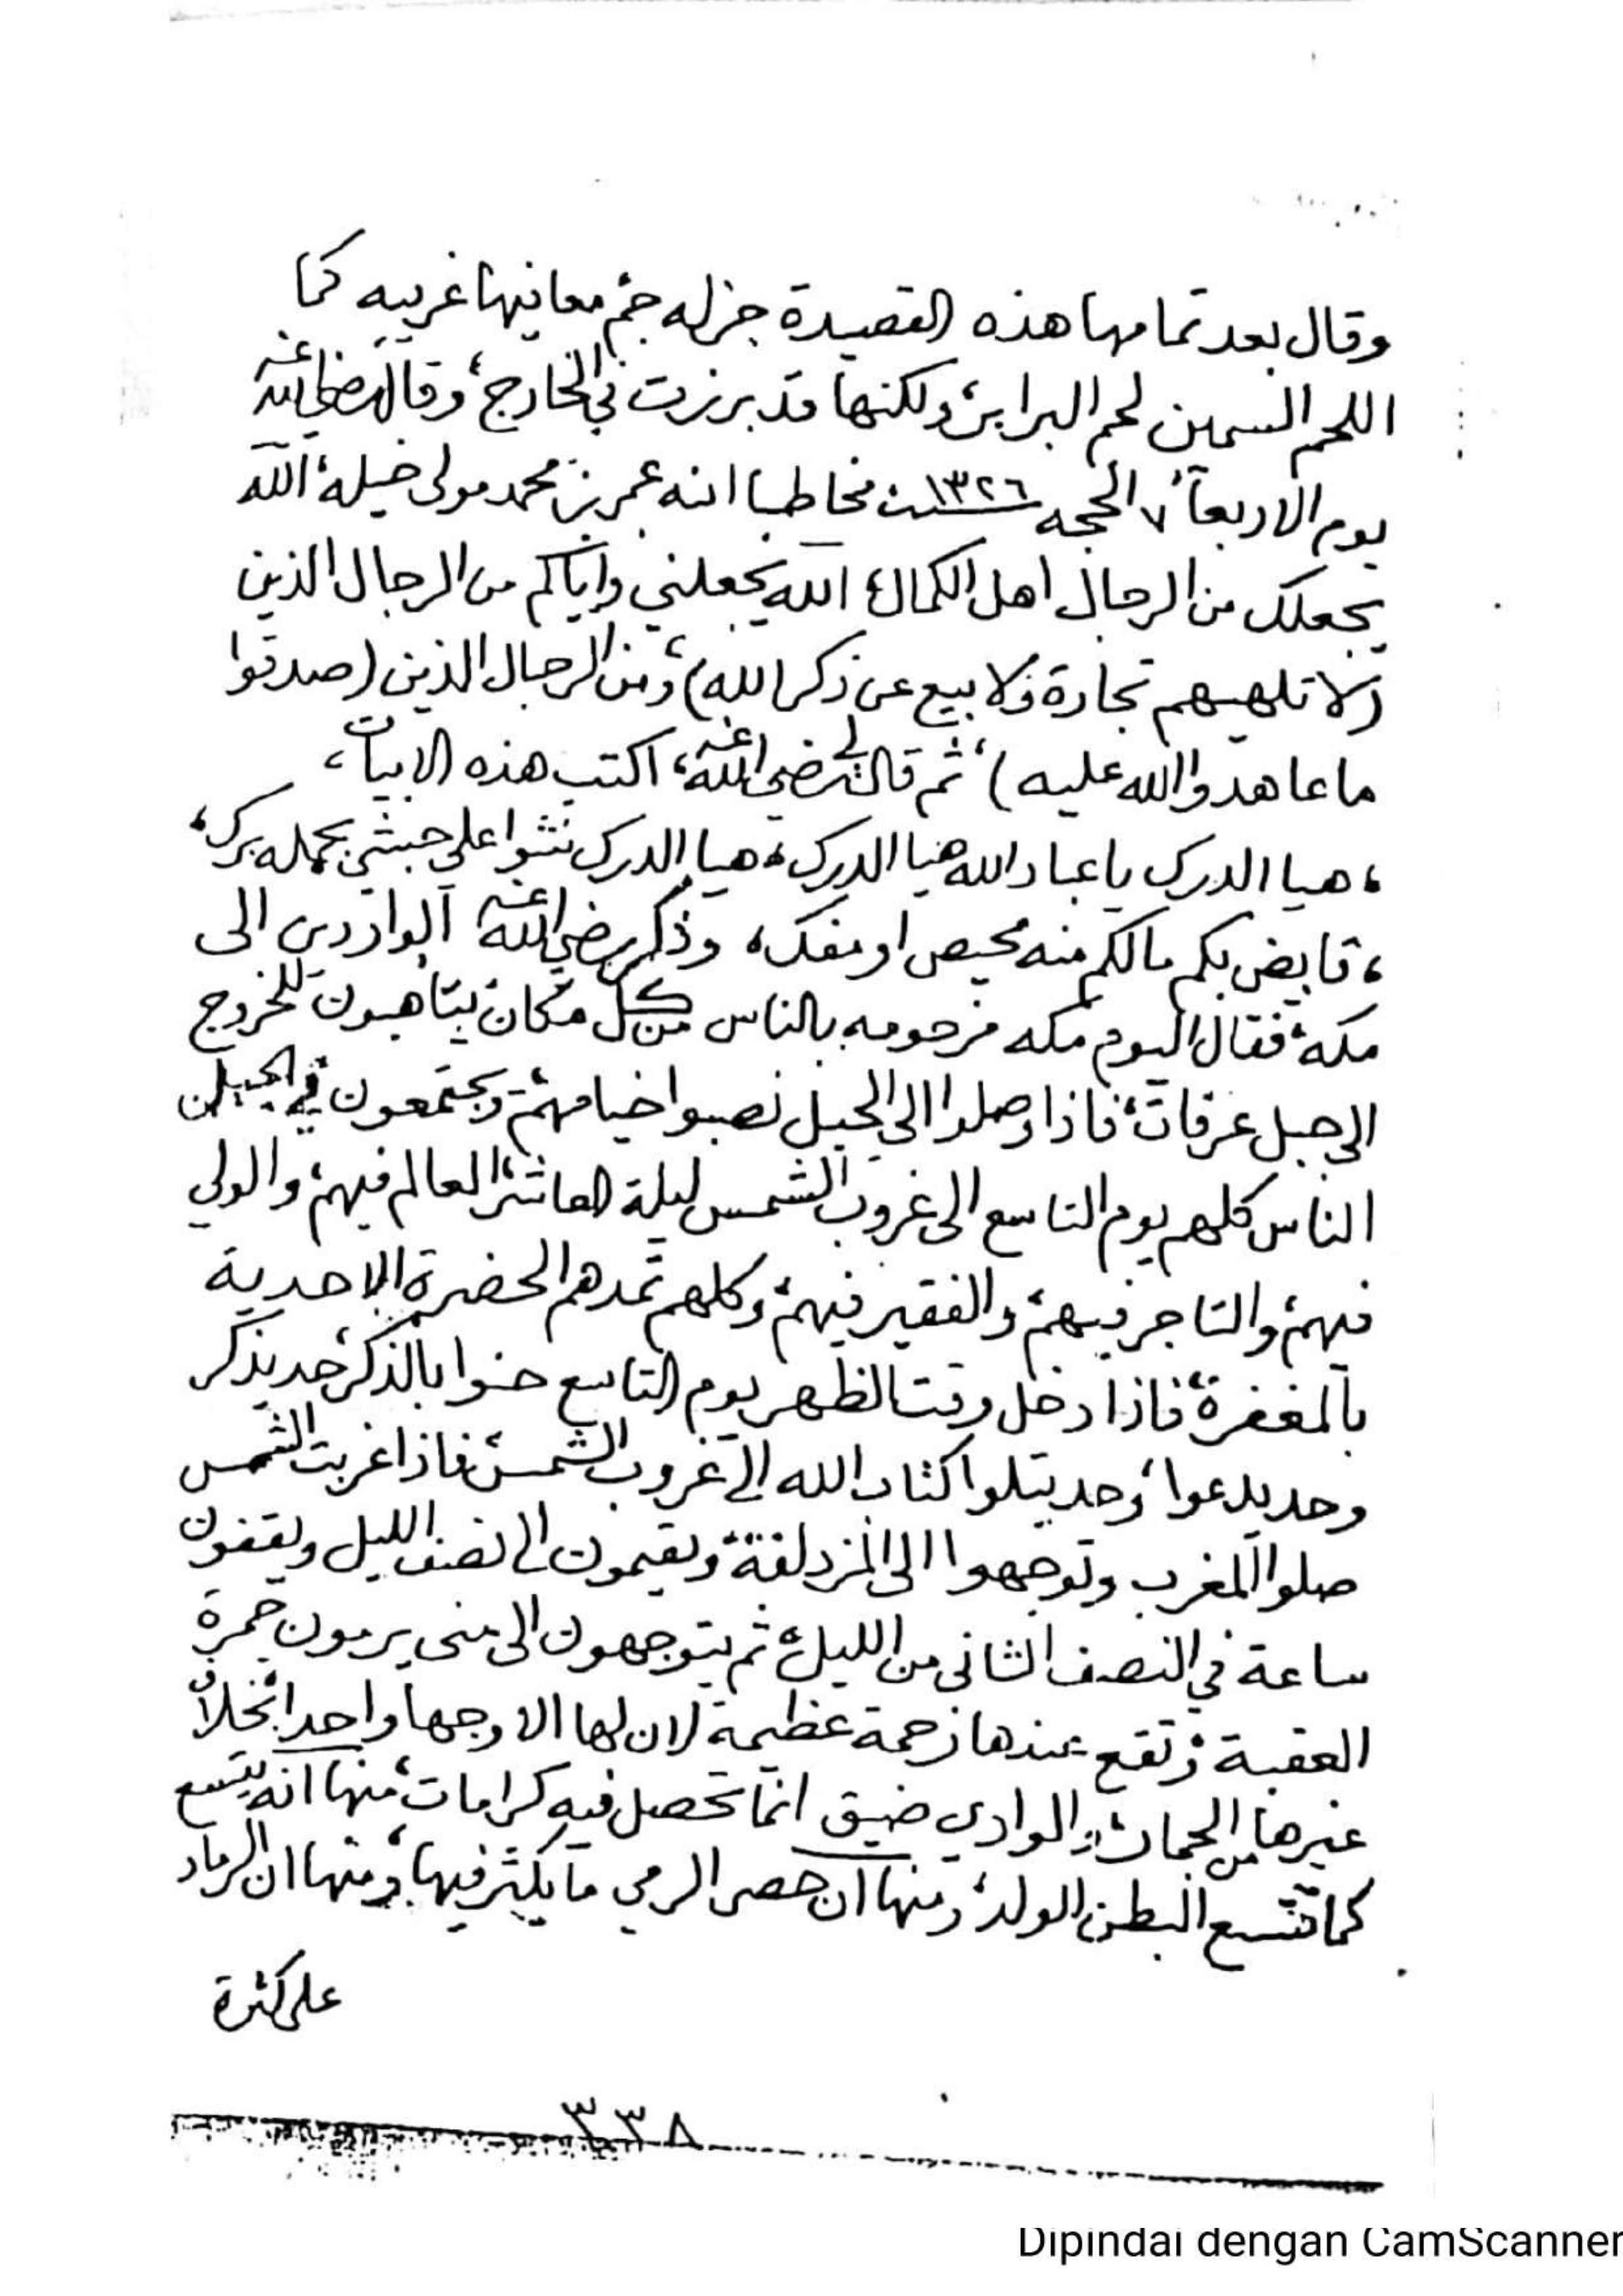 وقال بعد تمامها هذه القصيدة جزله جم معانيها غريبه كما
اللحم السمين لحم البرابر، ولكنها قد برزت في الخارج، وقال رضي الله عنه
يوم الاربعاء ٧ الحجه سنة ١٣٢٦ مخاطبا ابنه عمر بن محمد مولى خيله، الله
يجعلك من الرجال اهل الكمال، الله يجعلني واياكم من الرجال الذين
(لا تلهيهم تجارة ولا بيع عن ذكر الله)، ومن الرجال الذين (صدقوا
ما عاهدوا الله عليه)، ثم قال لي رضي الله عنه، اكتب هذه الابيات،
، هيا الدرك يا عباد الله هيا الدرك، هيا الدرك نثوا على حبشي بحمله برك،
، قابض بكم مالكم منه محيص او مفك، وذكر رضي الله عنه الواردين الى
مكة، فقال اليوم مكه مزحومه بالناس من كل مكان يتأهبون للخروج
الى جبل عرفات، فاذا وصلوا الى الجبل نصبوا خيامهم، ويجتمعون في الجبل
الناس كلهم يوم التاسع الى غروب الشمس ليلة العاشر، العالم فيهم، والولي
فيهم، والتاجر فيهم، والفقير فيهم، وكلهم تمدهم الحضرة الاحدية
بالمغفرة، فاذا دخل وقت الظهر يوم التاسع حنوا بالذكر، حد يذكر
وحد يدعوا، وحد يتلوا كتاب الله الى غروب الشمس، فاذا غربت الشمس
صلوا المغرب وتوجهوا الى المزدلفة، ويقيمون الى نصف الليل ويقفون
ساعة في النصف الثاني من الليل، ثم يتوجهون الى منى يرمون جمرة
العقبة وتقع عندها زحمة عظيمة لان لها الا وجها واحدا بخلاف
غيرها من الجمار، والوادي ضيق انما تحصل فيه كرامات، منها انه يتسع
كما تتسع البطن للولد، ومنها ان حصى الرمي ما يكثر فيها، ومنها ان الرماد
على كثرة
٣٣٨
Dipindai dengan CamScanner